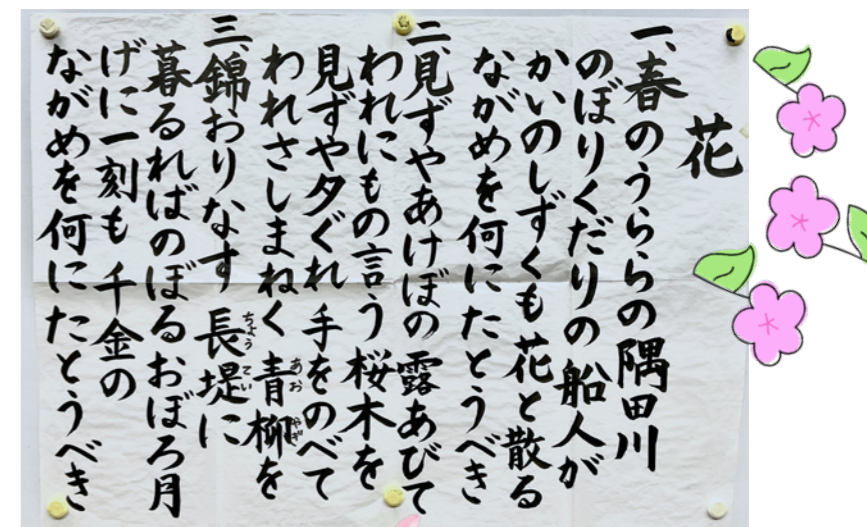 花
一、春のうららの隅田川
のぼりくだりの船人が
かいのしずくも花と散る
ながめを何にたとうべき
二、見ずやあけぼの露あびて
われにもの言う桜木を
見ずや夕ぐれ手をのべて
われさしまねく青柳を
あおやぎ
三、錦おりなす長堤に
ちょうてい
暮るればのぼるおぼろ月
げに一刻も千金の
ながめを何にたとうべき